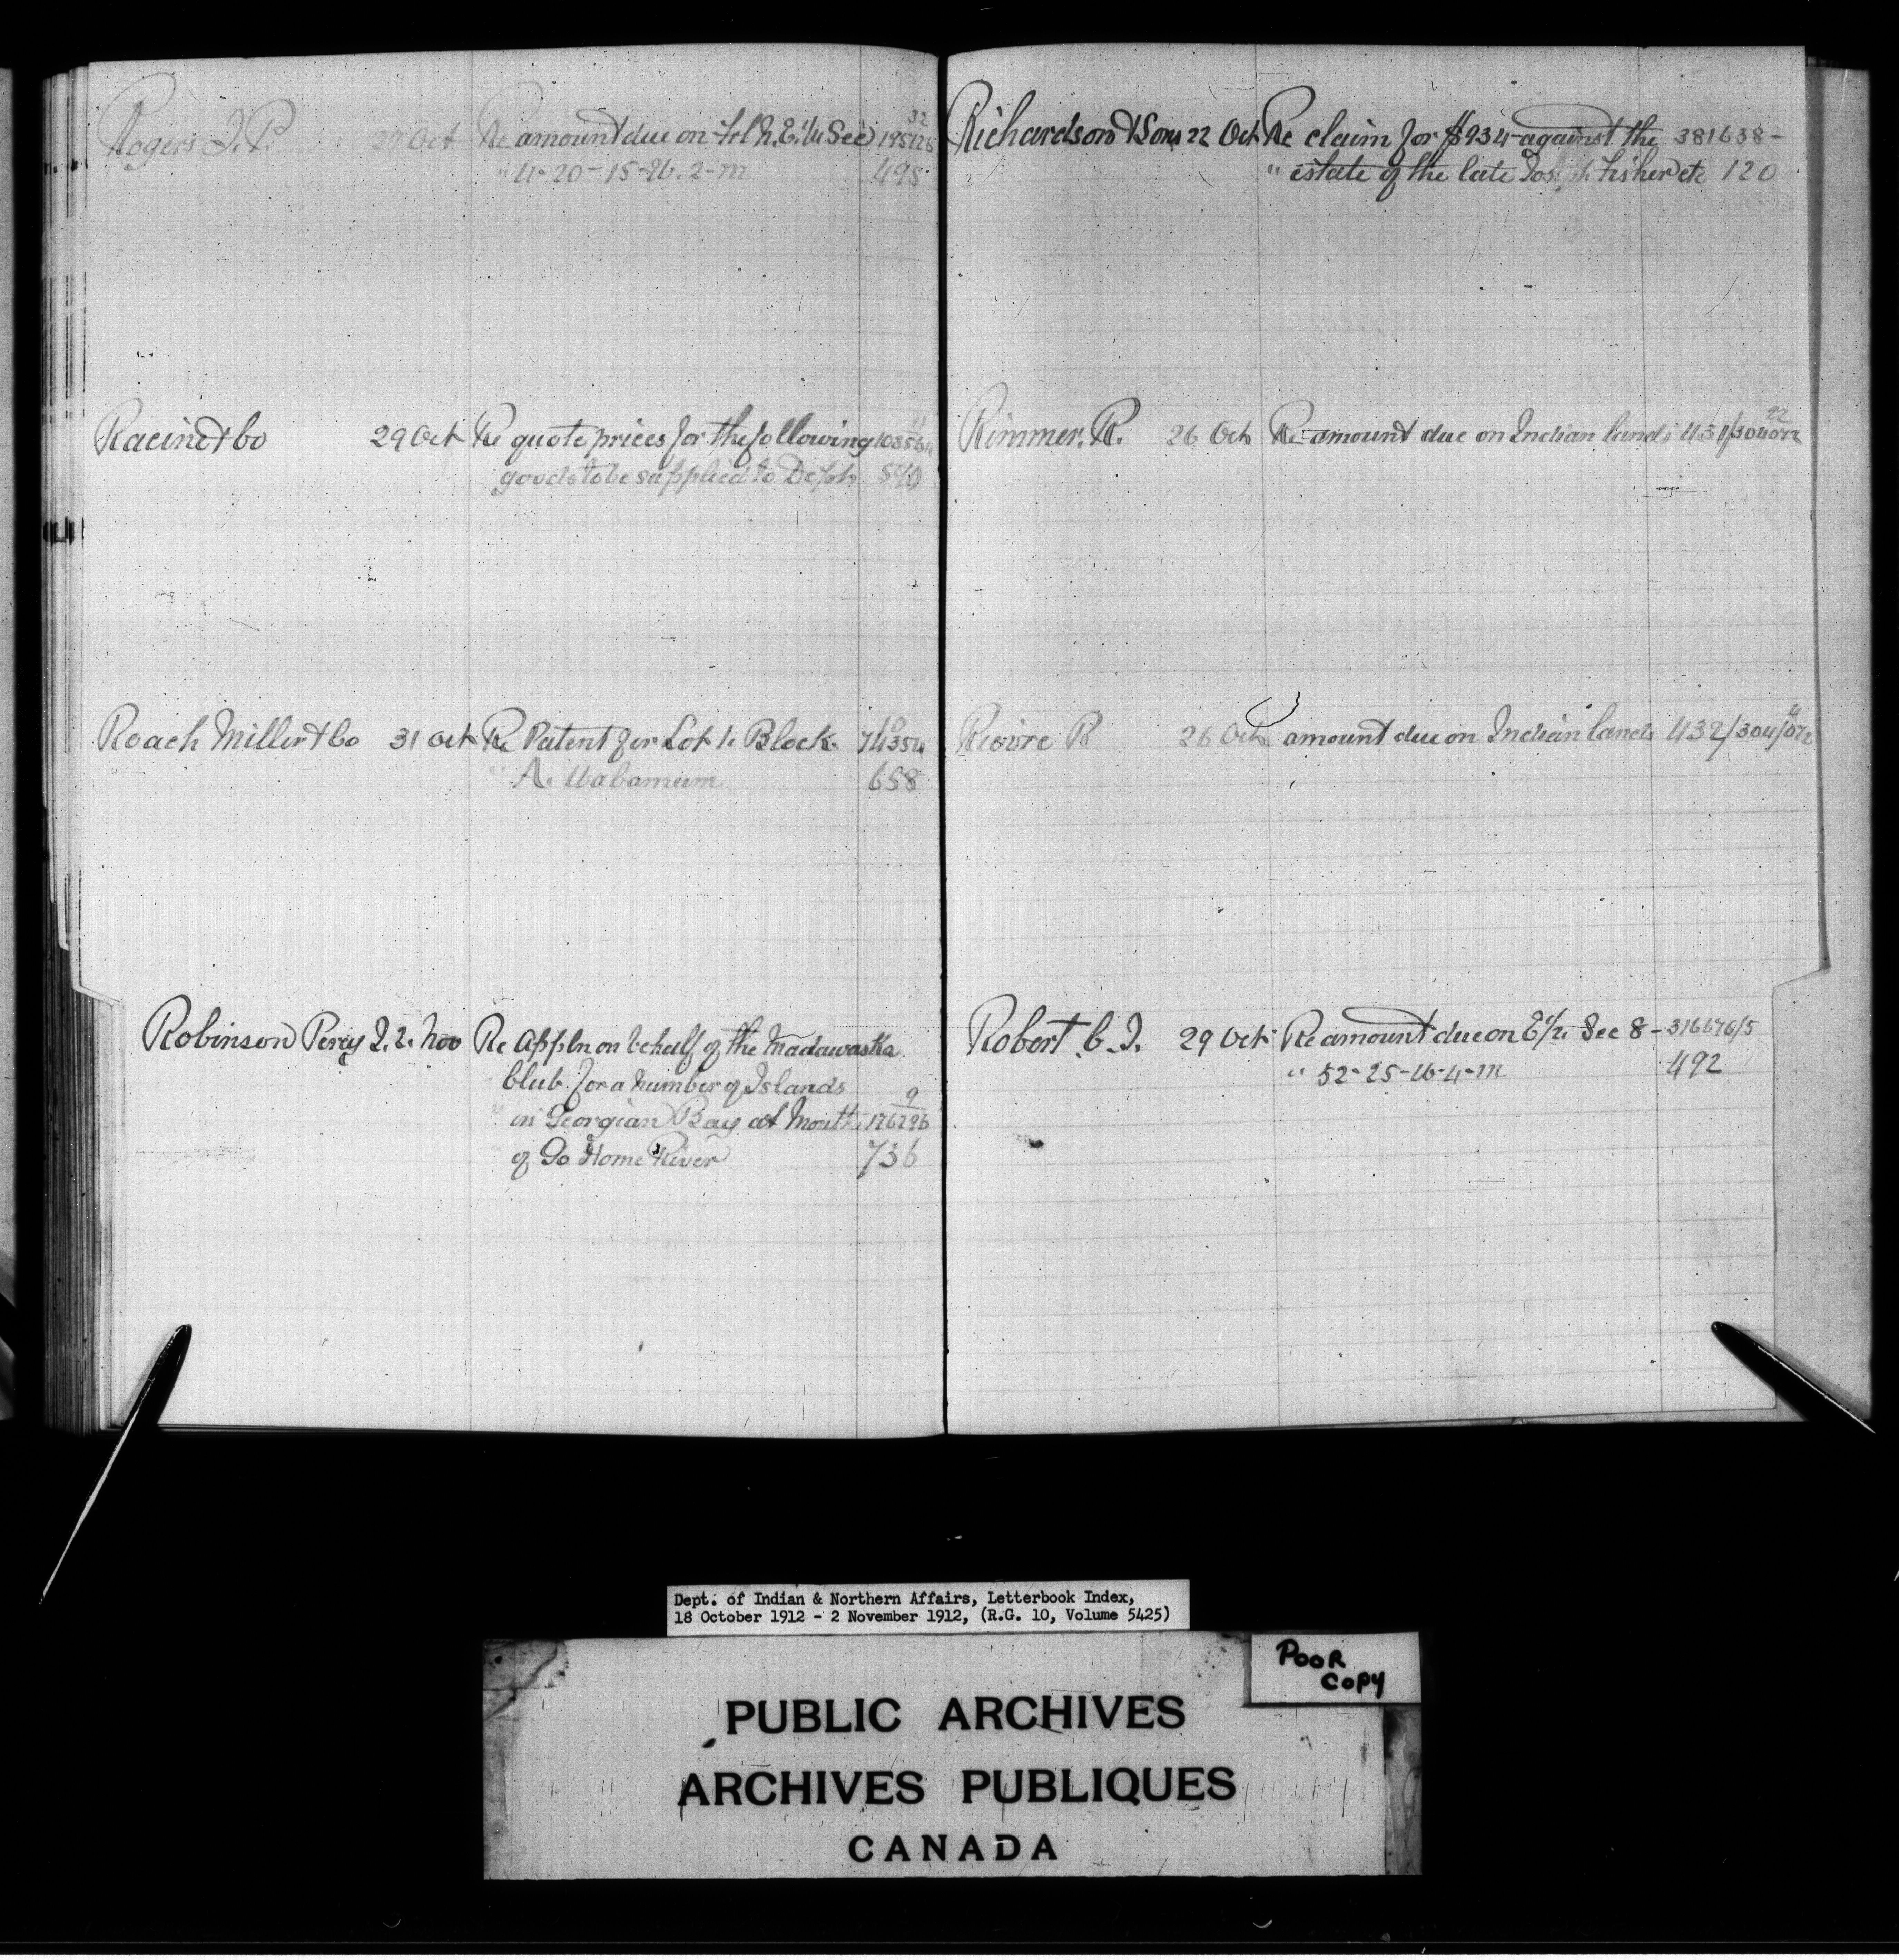 Rogers J. P. 29 Oct Re amount due on Frl N.E. 1/4 Sec 32 195126
" 4-20-15-W. 2-m 495
Racine & Co 29 Oct Re quote prices for the following 11
goods to be supplied to Dept. 590
Roach Miller & Co 31 Oct Re Patent for Lot 1. Block 10 74354
" A. Wabamum 658
Robinson Percy J. 2. Nov Re Appln on behalf of the Madawaska
Club for a number of Islands
" in Georgian Bay at Mouth 9 176296
" of Go Home River 736
Richardson & Sons 22 Oct Re claim for $934 against the 381638-
" estate of the late Joseph Fisher etc 120
Rimmer. R. 26 Oct Re amount due on Indian lands 431/304072 22
R 26 Oct amount due on Indian lands 432/304/072 4
Robert C. J. 29 Oct Re amount due on E 1/2 Sec 8- 316676/5
" 52-25-W-4-m 492
Dept. of Indian & Northern Affairs, Letterbook Index,
18 October 1912 - 2 November 1912, (R.G. 10, Volume 5425)
POOR
COPY
PUBLIC ARCHIVES
ARCHIVES PUBLIQUES
CANADA